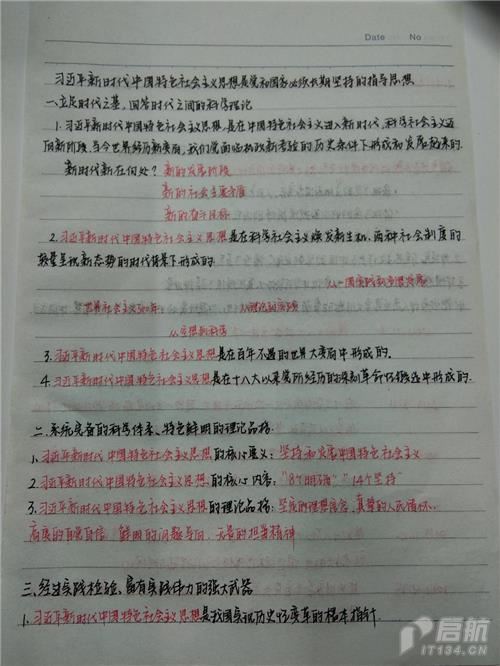 Date No
习近平新时代中国特色社会主义思想是党和国家必须长期坚持的指导思想
一、立足时代之基、回答时代之问的科学理论
1.习近平新时代中国特色社会主义思想,是在中国特色社会主义进入新时代,科学社会主义迈
向新阶段、当今世界经历新变局,我们党面临执政新考验的历史条件下形成和发展起来的.
新时代新在何处? 新的发展阶段
新的社会主要矛盾
新的奋斗目标
2.习近平新时代中国特色社会主义思想是在科学社会主义焕发新生机,两种社会制度的
较量呈现新态势的时代背景下形成的.
从一国实践到多国发展
世界社会主义500年 从理论到实践
从空想到科学
3.习近平新时代中国特色社会主义思想是在百年不遇的世界大变局中形成的.
4.习近平新时代中国特色社会主义思想是在十八大以来党所经历的深刻革命性锻造中形成的.
二.系统完备的科学体系、特色鲜明的理论品格.
1.习近平新时代中国特色社会主义思想的核心要义:坚持和发展中国特色社会主义
2.习近平新时代中国特色社会主义思想的核心内容:"8个明确" "14个坚持"
3.习近平新时代中国特色社会主义思想的理论品格:坚定的理想信念、真挚的人民情怀、
高度的自觉自信、鲜明的问题导向、无畏的担当精神
三、经过实践检验、富有实践伟力的强大武器
1.习近平新时代中国特色社会主义思想是我国实现历史性变革的根本指针.
启航
IT134.CN